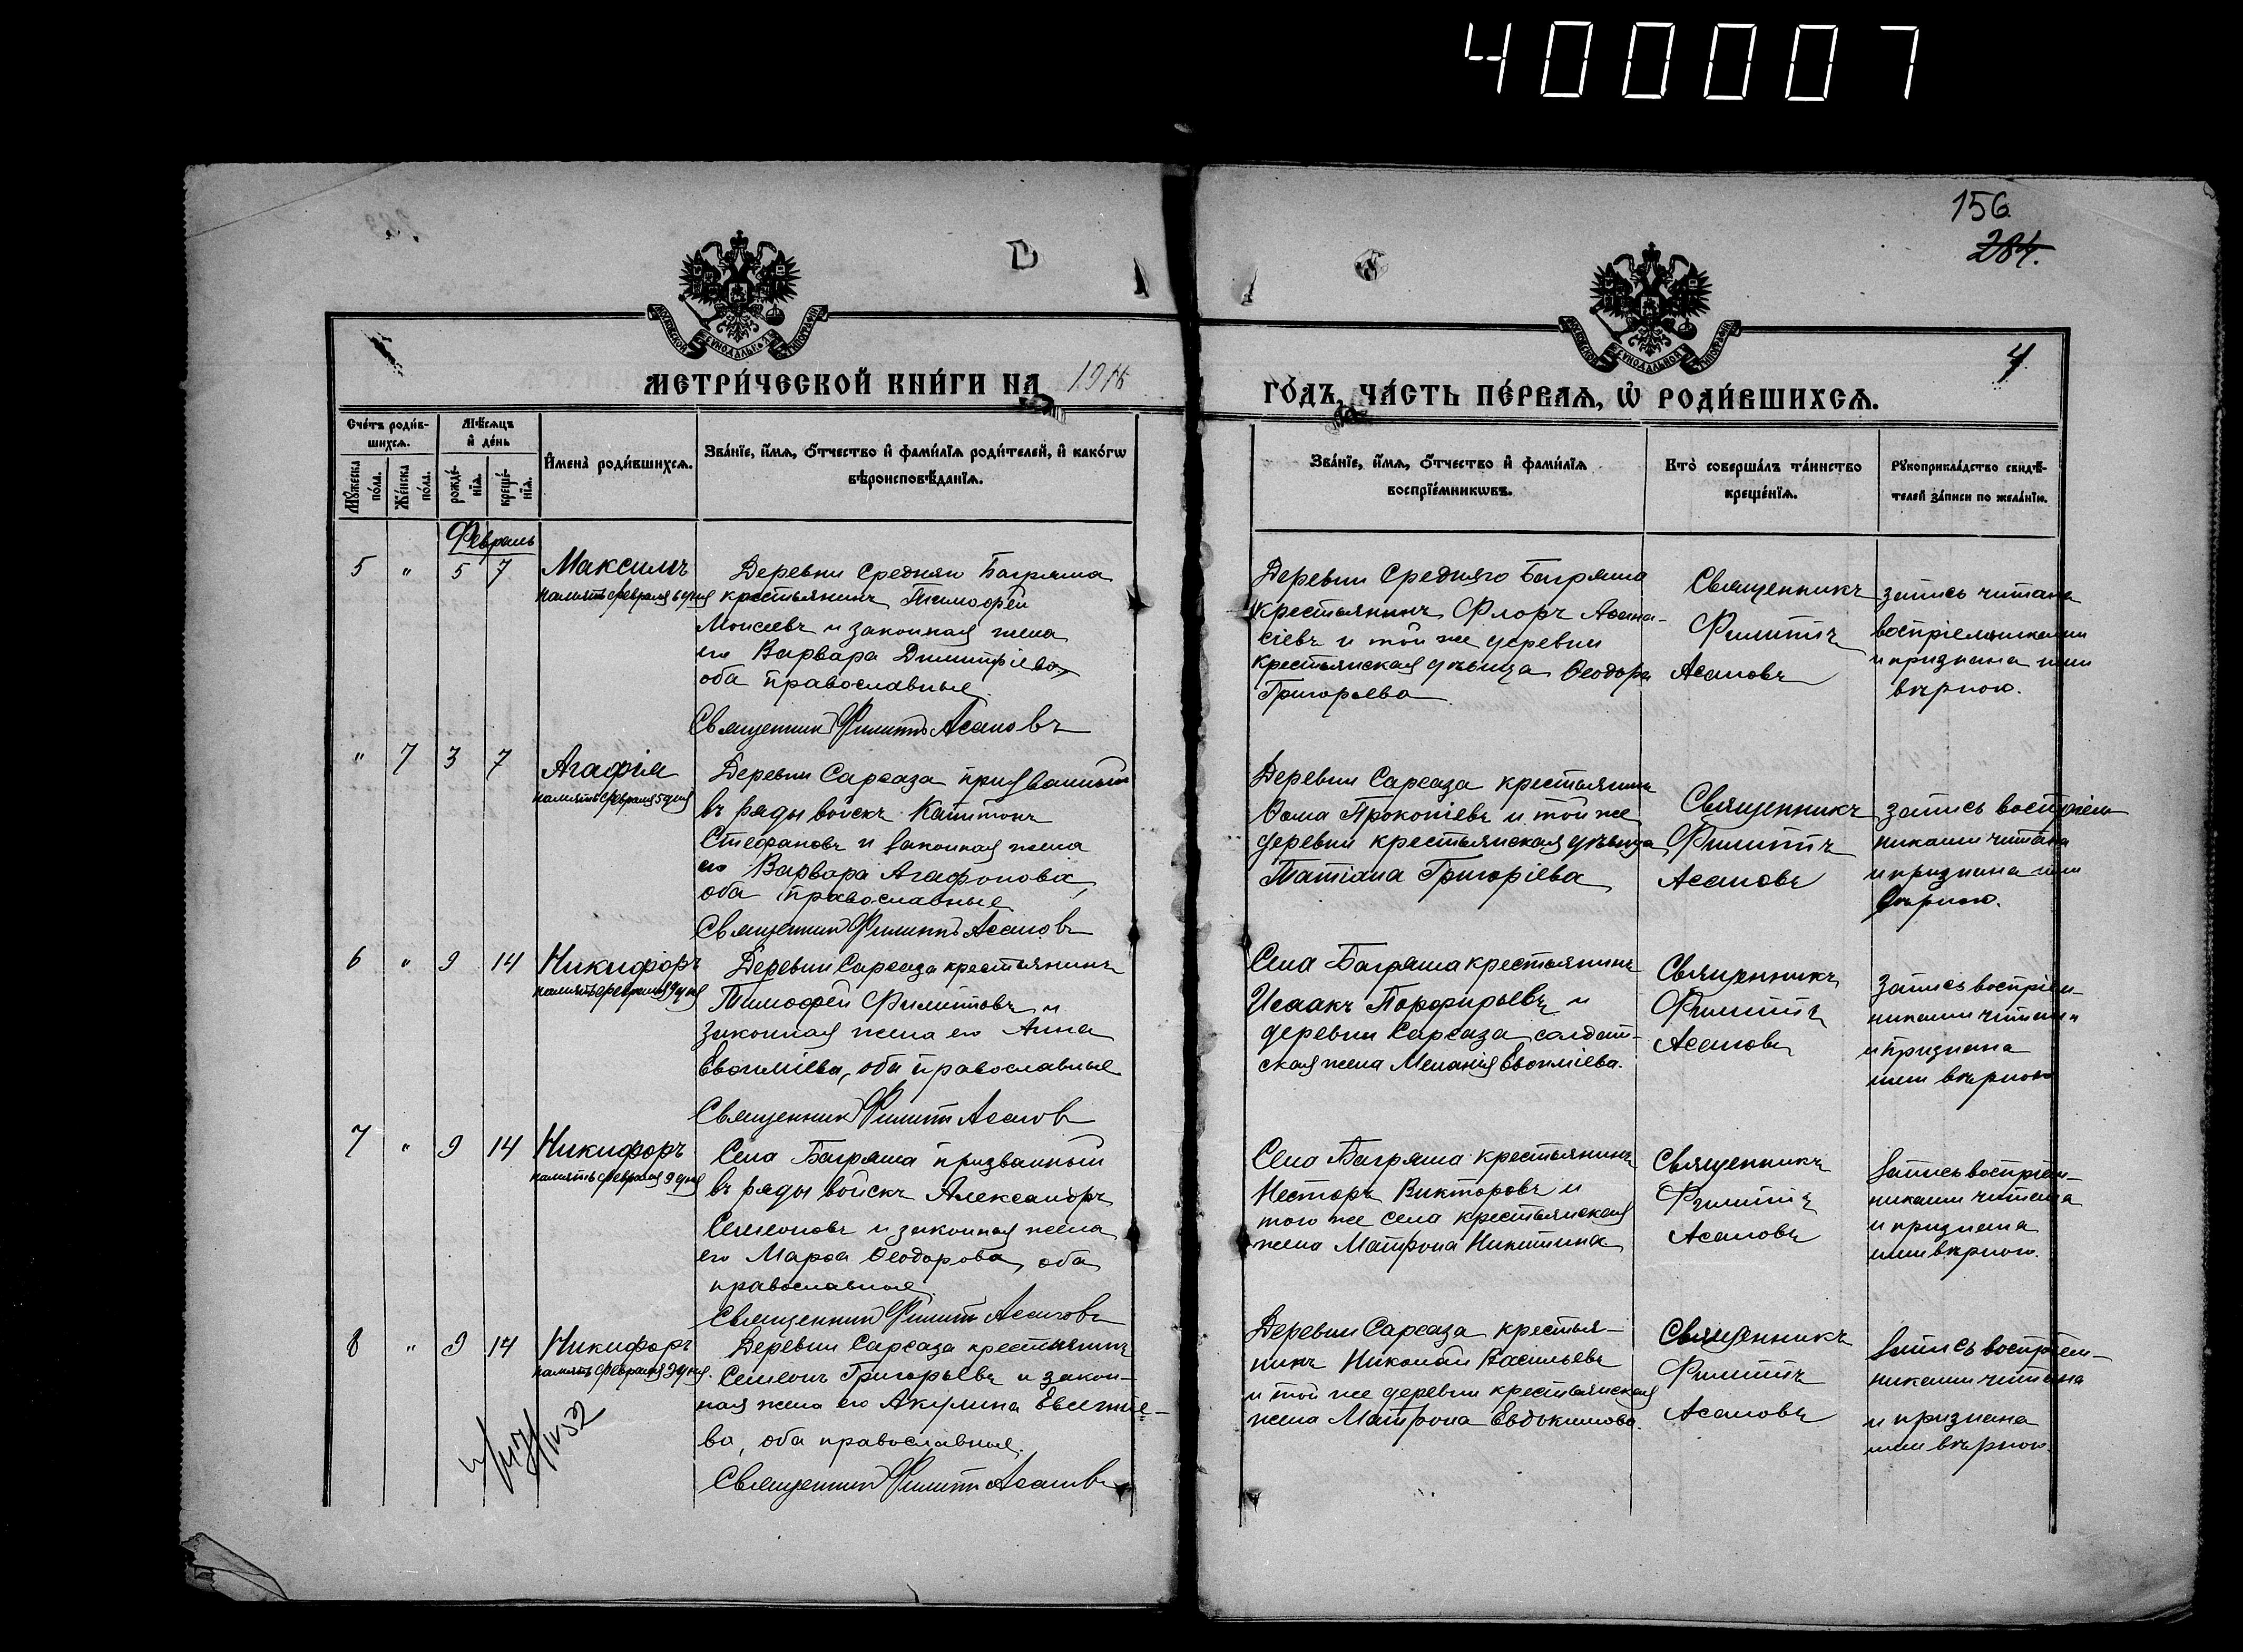 400007
156
284.
4
МОСКОВСКОЙ СѴНОДАЛЬНОЙ ТИПОГРАФІИ
МОСКОВСКОЙ СѴНОДАЛЬНОЙ ТИПОГРАФІИ
МЕТРИ́ЧЕСКОЙ КНИ́ГИ НА
ГО́ДЪ, ЧА́СТЬ ПЕ́РВАѦ, Ѡ҆ РОДИ́ВШИХСѦ.
Сче́тъ роди́в-
шихсѧ.
Мѣ́сѧцъ
и҆ де́нь
Мꙋ́жеска по́ла.
Же́нска по́ла.
рожде́-
нїѧ.
креще́-
нїѧ.
И҆мена̀ роди́вшихсѧ.
Зва́нїе, и҆́мѧ, ѻ҆́тчество и҆ фами́лїѧ роди́телей, и҆ како́гѡ
вѣроисповѣ́данїѧ.
Зва́нїе, и҆́мѧ, ѻ҆́тчество и҆ фами́лїѧ
воспрїе́мникѡвъ.
Кто̀ соверша́лъ та́инство
креще́нїѧ.
Рꙋкоприкла́дство свидѣ́-
телей за́писи по жела́нїю.
Февраль
5 " 5 7
Максимъ
память февраля 6 дня
Деревни Средняго Багряша
крестьянинъ Тимофей
Моисеевъ и законная жена
его Варвара Димитріева,
оба православные.
Священникъ Филиппъ Асановъ
Деревни Средняго Багряша
крестьянинъ Флоръ Аѳана-
сіевъ и той же деревни
крестьянская дѣвица Ѳеодора
Григорьева
Священникъ
Филиппъ
Асановъ
запись читана
воспріемниками
и признана ими
вѣрною.
" 7 3 7
Агафія
память февраля 5 дня
Деревни Сарсаза призванный
въ ряды войскъ Капитонъ
Стефановъ и законная жена
его Варвара Агафонова,
оба православные
Священникъ Филиппъ Асановъ
Деревни Сарсаза крестьянинъ
Ѳома Прокопіевъ и той же
деревни крестьянская дѣвица
Татіана Григоріева
Священникъ
Филиппъ
Асановъ
запись воспріем
никами читана
и признана ими
вѣрною.
6 " 9 14
Никифоръ
память февраля 9 дня
Деревни Сарсаза крестьянинъ
Тимофей Филипповъ и
законная жена его Анна
Евѳиміева, оба православные
Священникъ Филиппъ Асановъ
Села Багряша крестьянинъ
Исаакъ Порфирьевъ и
деревни Сарсаза солдат-
ская жена Меланія Евѳиміева.
Священникъ
Филиппъ
Асановъ
Запись воспріем-
никами читана
и признана
ими вѣрною
7 " 9 14
Никифоръ
память февраля 9 дня
Села Багряша призванный
въ ряды войскъ Александръ
Семеоновъ и законная жена
его Марѳа Ѳеодорова, оба
православные.
Священникъ Филиппъ Асановъ
Села Багряша крестьянинъ
Несторъ Викторовъ и
того же села крестьянская
жена Матрона Никитина
Священникъ
Филиппъ
Асановъ
Запись воспріем-
никами читана
и признана
ими вѣрною.
8 " 9 14
Никифоръ
память февраля 9 дня.
Деревни Сарсаза крестьянинъ
Семеонъ Григорьевъ и закон-
ная жена его Акулина
ва, оба православные.
Священникъ Филиппъ Асановъ
Деревни Сарсаза крестья-
нинъ Николай Васильевъ
и той же деревни крестьянская
жена Матрона Евдокимова.
Священникъ
Филиппъ
Асановъ
Запись воспріем-
никами читана
и признана
ими вѣрною.